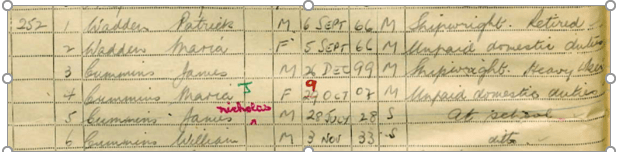 252 1 Wadden Patrick M 6 SEPT 66 M Shipwright. Retired
2 Wadden Maria F 5 SEPT 66 M Unpaid domestic duties
3 Cummins James M 26 DEC 99 M Shipwright. Heavy
4 Cummins Maria J F 29 OCT 07 M Unpaid domestic duties
5 Cummins Nicholas ^ James M 28 JULY 28 S At school
6 Cummins William M 3 NOV 33 S ditto